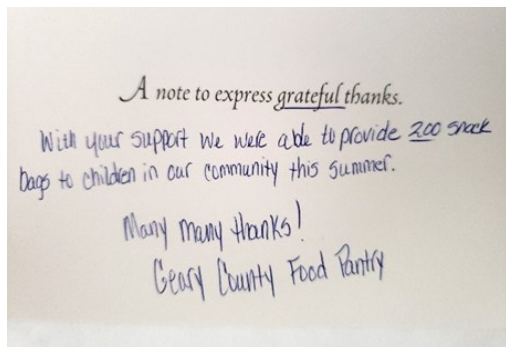 A note to express grateful thanks.
With your support we were able to provide 200 snack
bags to children in our community this summer.
Many many thanks!
Geary County Food Pantry